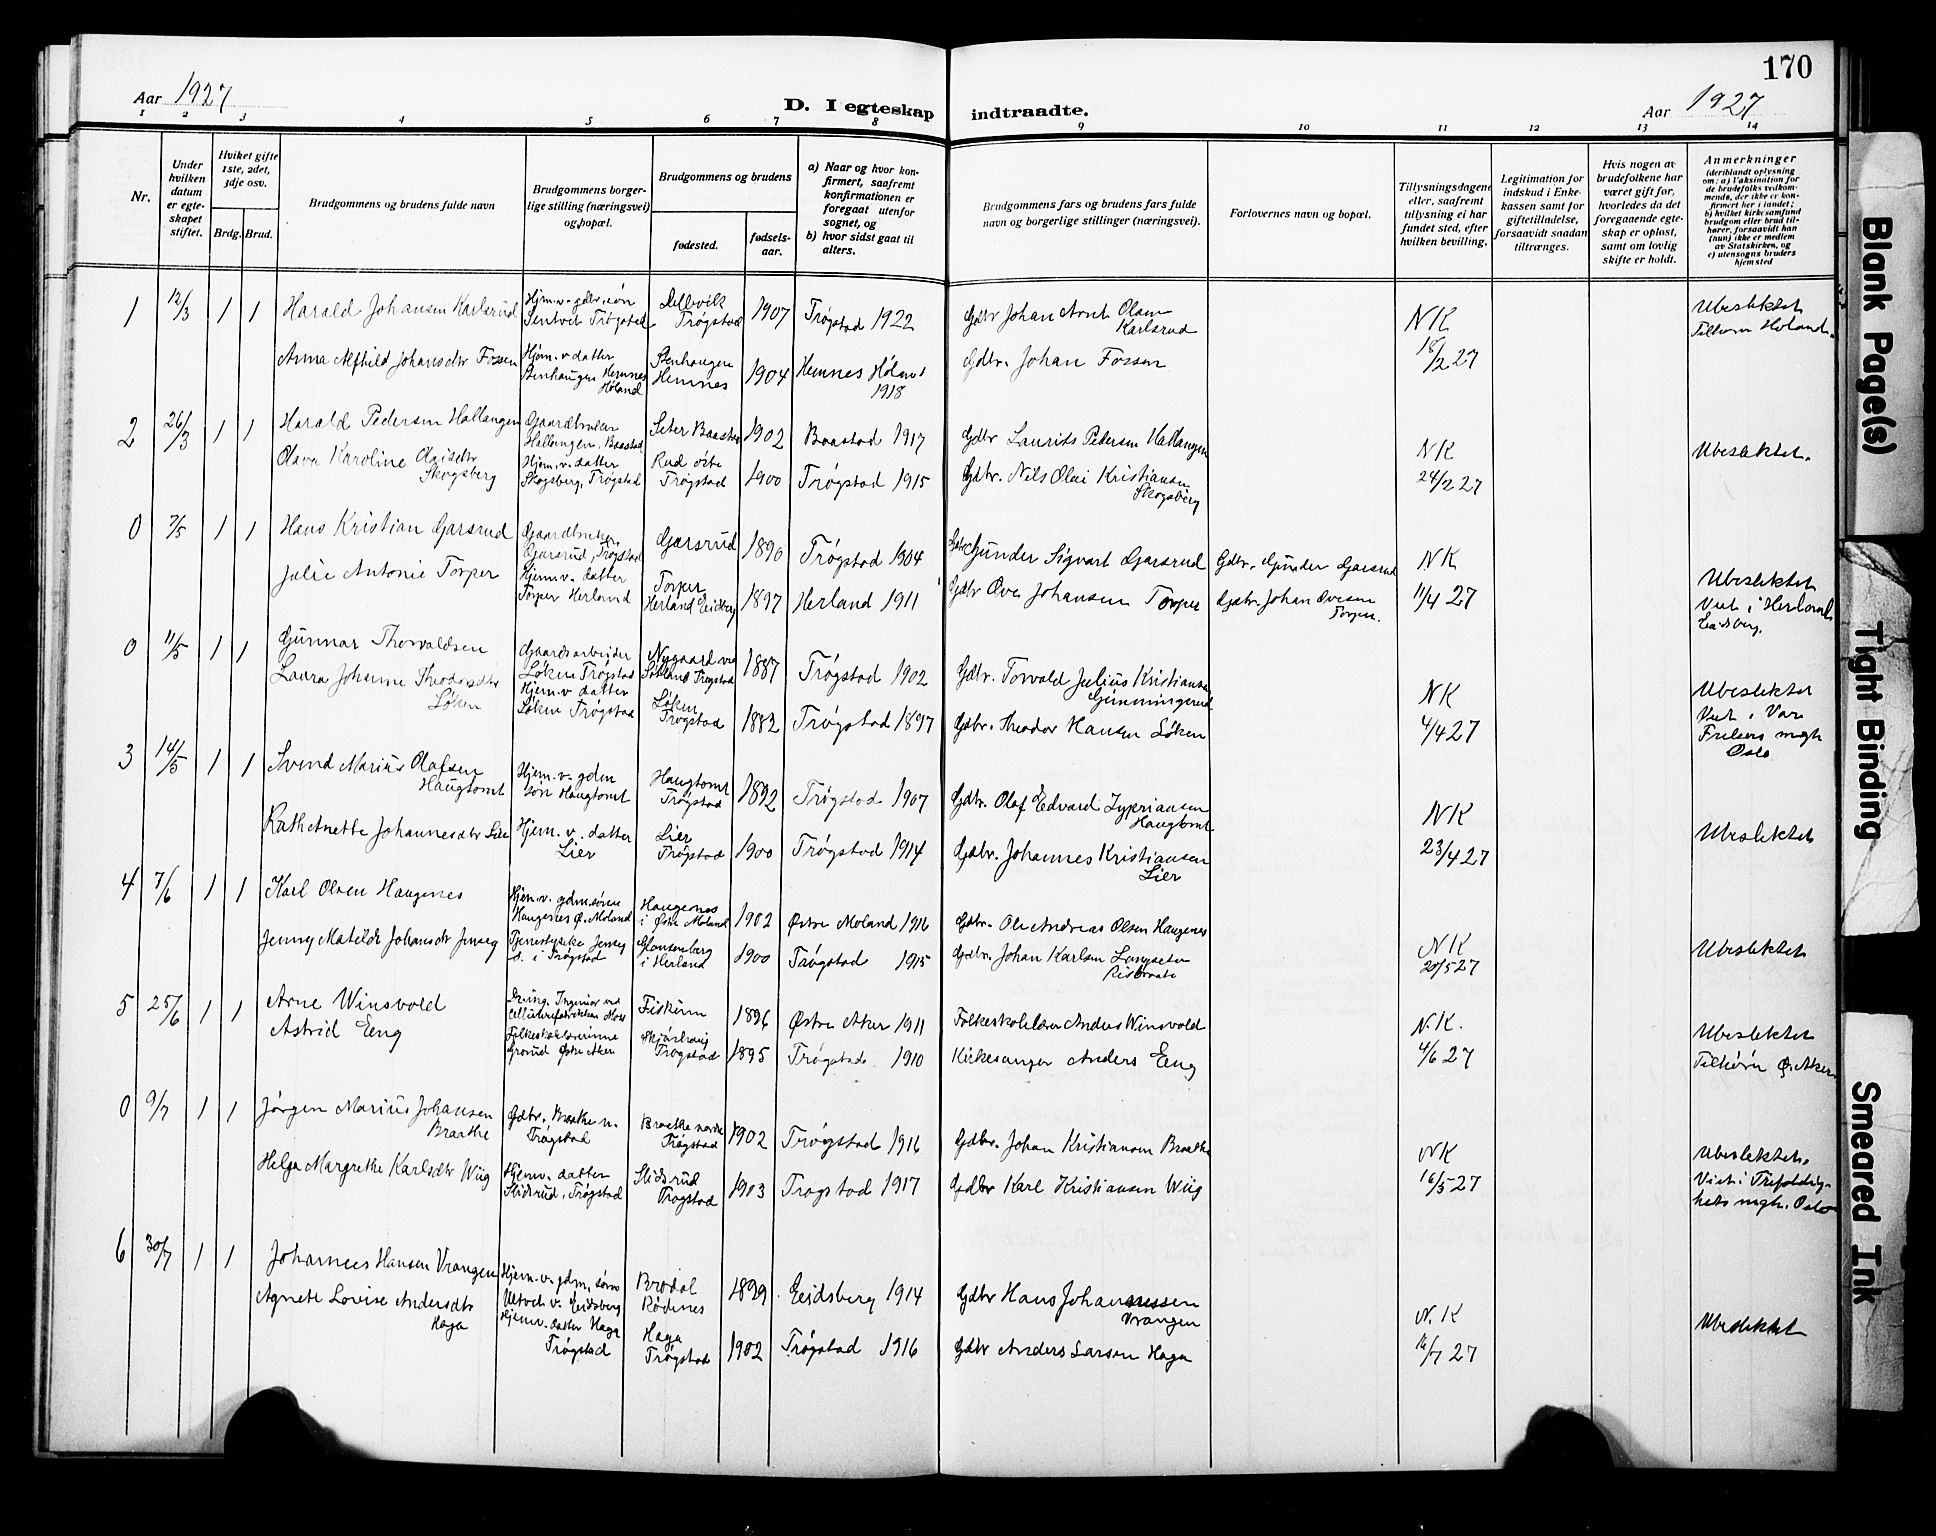 170
Aar 1927
D. I egteskap indtraadte.
Aar 1927
1 2 3 4 5 6 7 8 9 10 11 12 13 14
Nr.
Under hvilken datum er egteskapet stiftet.
Hvilket gifte 1ste, 2det, 3dje osv.
Brdg. Brud.
Brudgommens og brudens fulde navn
Brudgommens borgerlige stilling (næringsvei) og bopæl.
Brudgommens og brudens
fødested.
fødselsaar.
a) Naar og hvor konfirmert, saafremt konfirmationen er foregaat utenfor sognet, og
b) hvor sidst gaat til alters.
Brudgommens fars og brudens fars fulde navn og borgerlige stillinger (næringsvei).
Forlovernes navn og bopæl.
Tillysningsdagene eller, saafremt tillysning ei har fundet sted, efter hvilken bevilling.
Legitimation for indskud i Enkekassen samt for giftetilladelse, forsaavidt saadan tiltrænges.
Hvis nogen av brudefolkene har været gift før, hvorledes da det foregaaende egteskap er opløst, samt om lovlig skifte er holdt.
Anmerkninger (deriblandt oplysning om: a) Vaksination for de brudefolks vedkommende, der ikke er konfirmert her i landet; b) hvilket kirkesamfund brudgom eller brud tilhører, forsaavidt han (hun) ikke er medlem av Statskirken, og c) utensogns bruders hjemsted
1 12/3 1 1 Harald Johansen Karlsrud Hjem.v. gdbr. søn Sentvet Trøgstad Trøgstad 1907 Trøgstad 1922 Gdbr Johan Arnt Olsen Karlsrud NK 18/2 27 Ubeslektet Tilhører Høland.
Anna Alfhild Johansdtr Fossen Hjem.v datter Stenhaugen Hemnes Høland Stenhaugen Hemnes 1904 Hemnes Høland 1918 Gdbr. Johan Fossen
2 26/3 1 1 Harald Pedersen Hallangen Gaardbruker Hallangen, Baastad Seter Baastad 1902 Baastad 1917 Gdbr Laurits Pedersen Hallangen NK 24/2 27 Ubeslektet.
Olava Karoline Skogsberg Hjem.v. datter Skogsberg, Trøgstad Rud østre Trøgstad 1900 Trøgstad 1915 Gdbr. Nils Olai Kristiansen Skogsberg
0 7/5 1 1 Hans Kristian Garsrud Gaardbruker Garsrud, Trøgstad Garsrud 1890 Trøgstad 1904 Gdbr Gunder Sigvart Garsrud Gdbr. Gunder Garsrud NK 11/4 27 Ubeslektet Viet i Herland Eidsberg.
Julie Antonie Torper Hjem.v. datter Torper Herland Torper Herland Eidsberg 1897 Herland 1911 Gdbr Ove Johansen Torper Gdbr. Johan Ovesen Torper.
0 11/5 1 1 Gunnar Thorvaldsen Gaardsarbeider Løken Trøgstad Nygaard Trøgstad 1887 Trøgstad 1902 Gdbr. Torvald Julius Kristiansen Gimmingsrud NK 4/4 27 Ubeslektet Viet i Vor Frelsers mgh Oslo
Laura Johanne Theodorsdtr Løken Hjem.v datter Løken Trøgstad Løken Trøgstad 1882 Trøgstad 1897 Gdbr. Theodor Hansen Løken
3 14/5 1 1 Svend Marius Olafsen Haugtomt Hjem.v. gdm søn Haugtomt Haugtomt Trøgstad 1892 Trøgstad 1907 Gdbr. Olaf Edvard Zypriansen Haugtomt NK 23/4 27 Ubeslektet
Kath Anette Johannesdtr Lier Hjem.v. datter Lier Lier Trøgstad 1900 Trøgstad 1914 Gdbr. Johannes Kristiansen Lier
4 7/6 1 1 Karl Olsen Haugenes Hjem.v. gdm. sønn Haugenes Ø. Moland Haugenes i Østre Moland 1902 Østre Moland 1916 Gdbr. Ole Andreas Olsen Haugenes N.K 20/5 27 Ubeslektet
Jenny Matilde Johansdtr Jenseg Tjenestepike Jenseg i Trøgstad i Herland 1900 Trøgstad 1915 Gdbr. Johan Karlsen
5 25/6 1 1 Arne Winsvold Ingeniør ved Moss Fiskum 1896 Østre Aker 1911 Folkeskolelærer Anders Winsvold N.K. 4/6 27 Ubeslektet Tilhører Ø. Aker
Astrid Eeng Folkeskolelærerinne Grorud Østre Aker Trøgstad 1895 Trøgstad 1910 Kirkesanger Anders Eeng
0 9/7 1 1 Jørgen Marius Johansen Braathe Gdbr. Braathe n. Trøgstad Braathe nordre Trøgstad 1902 Trøgstad 1916 Gdbr. Johan Kristiansen Braathe NK 16/5 27 Ubeslektet. Viet i Trefoldighets mgh. Oslo
Helga Margrethe Karlsdtr Wiig Hjemv. datter Slidsrud, Trøgstad Slidsrud Trøgstad 1903 Trøgstad 1917 Gdbr Karl Kristiansen Wiig
6 30/7 1 1 Johannes Hansen Vrangen Hjem.v. gdm. sønn v. Eidsberg Brødal Rødenes 1899 Eidsberg 1914 Gdbr Hans Johannessen Vrangen N.K 16/7 27 Ubeslektet
Agnete Lovise Andersdtr Haga Hjemv. datter Haga Trøgstad Haga Trøgstad 1902 Trøgstad 1916 Gdbr Anders Larsen Haga
Blank Page(s)
Tight Binding
Smeared Ink